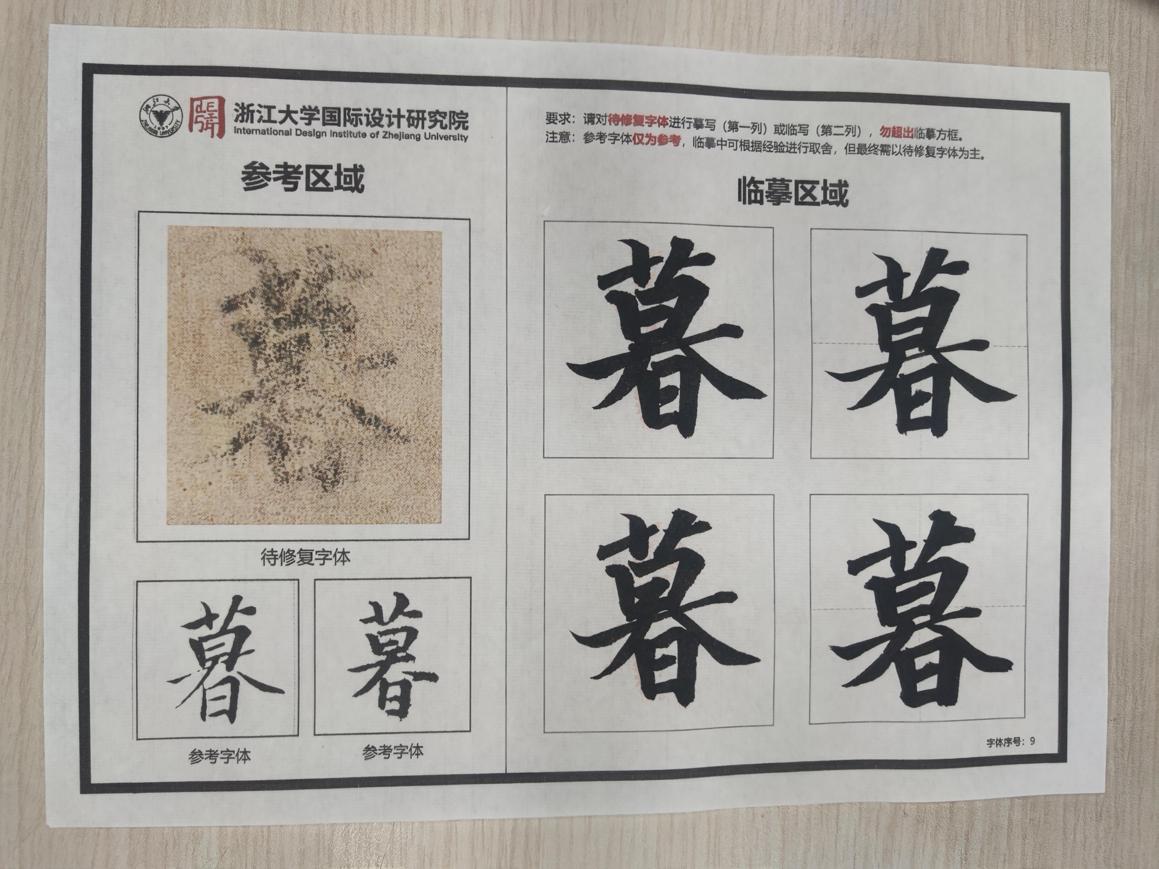 浙江大学国际设计研究院
International Design Institute of Zhejiang University
参考区域
暮
待修复字体
暮 暮
参考字体 参考字体
要求：请对待修复字体进行摹写（第一列）或临写（第二列），勿超出临摹方框。
注意：参考字体仅为参考，临摹中可根据经验进行取舍，但最终需以待修复字体为主。
临摹区域
暮 暮
暮 暮
字体序号：9